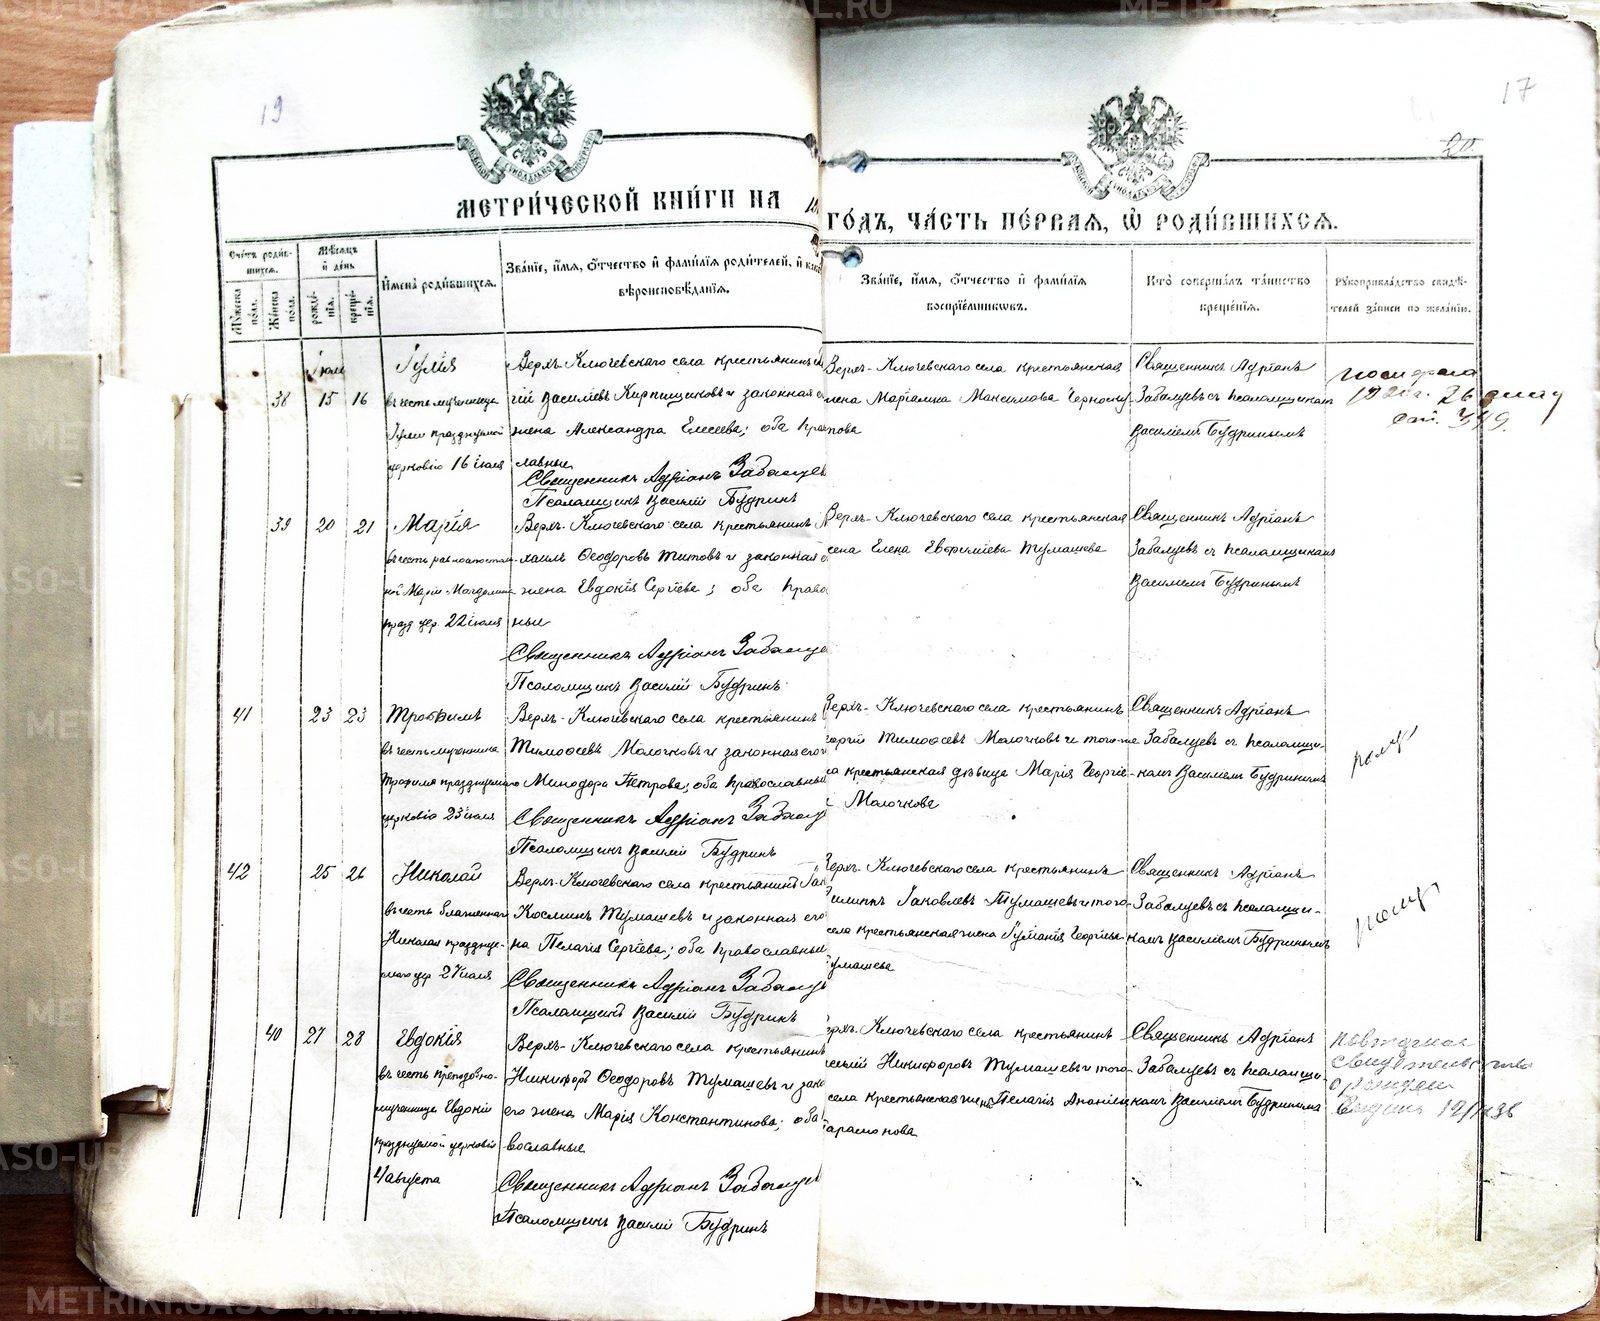 19
17
20
МЕТРИ́ЧЕСКОЙ КНИ́ГИ НА
ГО́ДЪ, ЧА́СТЬ ПЕ́РВАЯ, Ѡ҆ РОДИ́ВШИХСЯ.
Сче́тъ роди́в-
шихся.
Му́жеска по́ла.
Же́нска по́ла.
Мѣ́сяцъ
и҆ де́нь
рожде́-
нія.
креще́-
нія.
И҆мена̀ роди́вшихся.
Зва́ніе, и҆́мя, ѻ҆́тчество и҆ фами́лія роди́телей, и҆ како
вѣроисповѣ́данія.
Зва́ніе, и҆́мя, ѻ҆́тчество и҆ фами́лія
воспріе́мниковъ.
Кто̀ соверша́лъ та́инство
креще́нія.
Рукоприкла́дство свидѣ́-
телей за́писи по жела́нію.
Іюль
38 15 16
Іулія
въ честь мученицы
Іуліи празднуемой
церковію 16 іюля
Верхъ-Ключевскаго села крестьянинъ
гій Васильевъ Кирпищиковъ и законная
жена Александра Елисеева; оба пра
славные
Священникъ Адріанъ Забалуе
Псаломщикъ Василій Будринъ
Верхъ-Ключевскаго села крестьянская
жена Маріамна Максимова Черноску
това
Священникъ Адріанъ
Забалуевъ съ псаломщикомъ
Василіемъ Будринымъ
26
39 20 21
Марія
въ честь равноапостоль-
ной Маріи-Магдалины
празд. цер. 22 іюля
Верхъ-Ключевскаго села крестьянинъ
хаилъ Ѳеодоровъ Титовъ и законная
жена Евдокія Сергіева; оба право
ные
Священникъ Адріанъ Забалуе
Псаломщикъ Василій Будринъ
Верхъ-Ключевскаго села крестьянская
жена Елена Евфиміева Тумашева
Священникъ Адріанъ
Забалуевъ съ псаломщикомъ
Василіемъ Будринымъ
41 23 23
Трофимъ
въ честь мученика
Трофима празднуемаго
церковію 23 іюля
Верхъ-Ключевскаго села крестьянинъ
Тимоѳеевъ Молочковъ и законная его
Минодора Петрова; оба православные
Священникъ Адріанъ Забалуе
Псаломщикъ Василій Будринъ
Верхъ-Ключевскаго села крестьянинъ
оргій Тимоѳеевъ Молочковъ и того-же
ла крестьянская дѣвица Марія Георгіе-
Молочкова
Священникъ Адріанъ
Забалуевъ съ псаломщи-
комъ Василіемъ Будринымъ
42 25 26
Николай
въ честь блаженнаго
Николая празднуе-
маго цер. 27 іюля
Верхъ-Ключевскаго села крестьянинъ
Космичъ Тумашевъ и законная его
на Пелагія Сергіева; оба православные
Священникъ Адріанъ Забалуе
Псаломщикъ Василій Будринъ
Верхъ-Ключевскаго села крестьянинъ
илиппъ Іаковлевъ Тумашевъ и того-
села крестьянская жена Іуліанія Георгіева
Тумашева
Священникъ Адріанъ
Забалуевъ съ псаломщи-
комъ Василіемъ Будринымъ
40 27 28
Евдокія
въ честь преподобно-
мученицы Евдокіи
празднуемой церковію
4 августа
Верхъ-Ключевскаго села крестьянинъ
Никифоръ Ѳеодоровъ Тумашевъ и зако
его жена Марія Константинова; оба
вославные
Священникъ Адріанъ Забалуе
Псаломщикъ Василій Будринъ
ерхъ-Ключевскаго села крестьянинъ
Никифоровъ Тумашевъ и того-
села крестьянская жена Пелагія Ананіи
арамонова
Священникъ Адріанъ
Забалуевъ съ псаломщи-
комъ Василіемъ Будринымъ
повторное
свидетельство
о рожден
METRIKI.GASO-URAL.RU